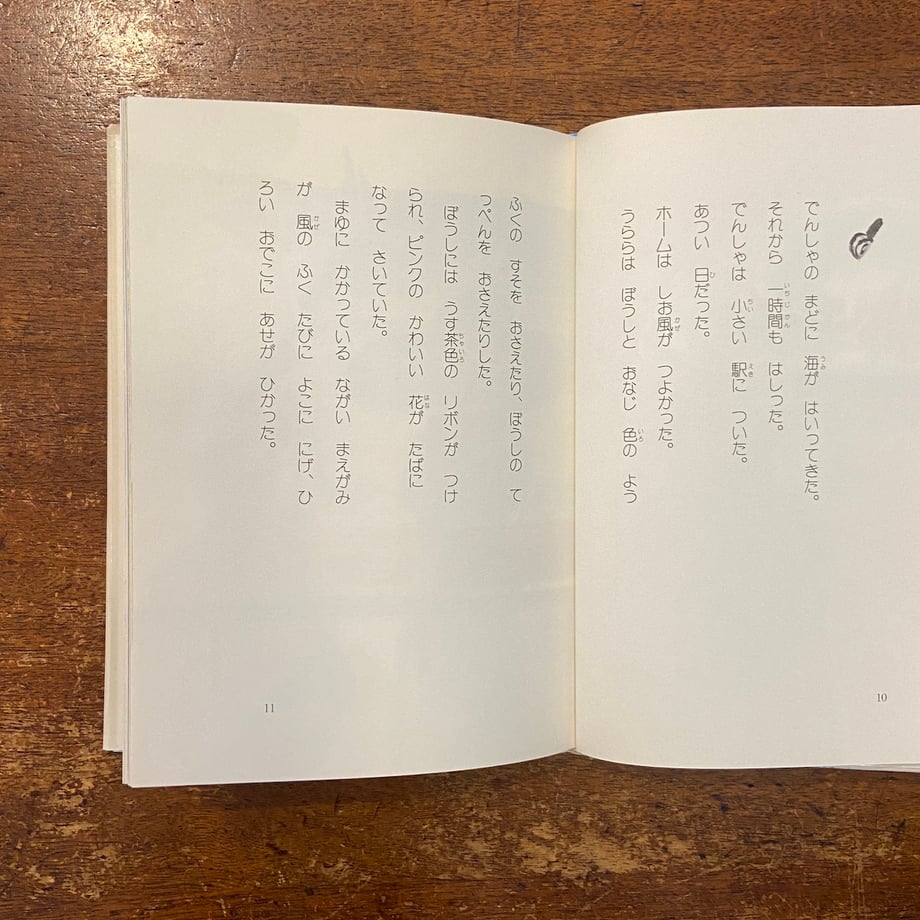 でんしゃの まどに 海が はいってきた。
それから 一時間も はしった。
でんしゃは 小さい 駅に ついた。
あつい 日だった。
ホームは しお風が つよかった。
うららは ぼうしと おなじ 色の よう
10
ふくの すそを おさえたり、ぼうしの て
っぺんを おさえたりした。
ぼうしには うす茶色の リボンが つけ
られ、ピンクの かわいい 花が たばに
なって さいていた。
まゆに かかっている ながい まえがみ
が 風の ふく たびに よこに にげ、ひ
ろい おでこに あせが ひかった。
11